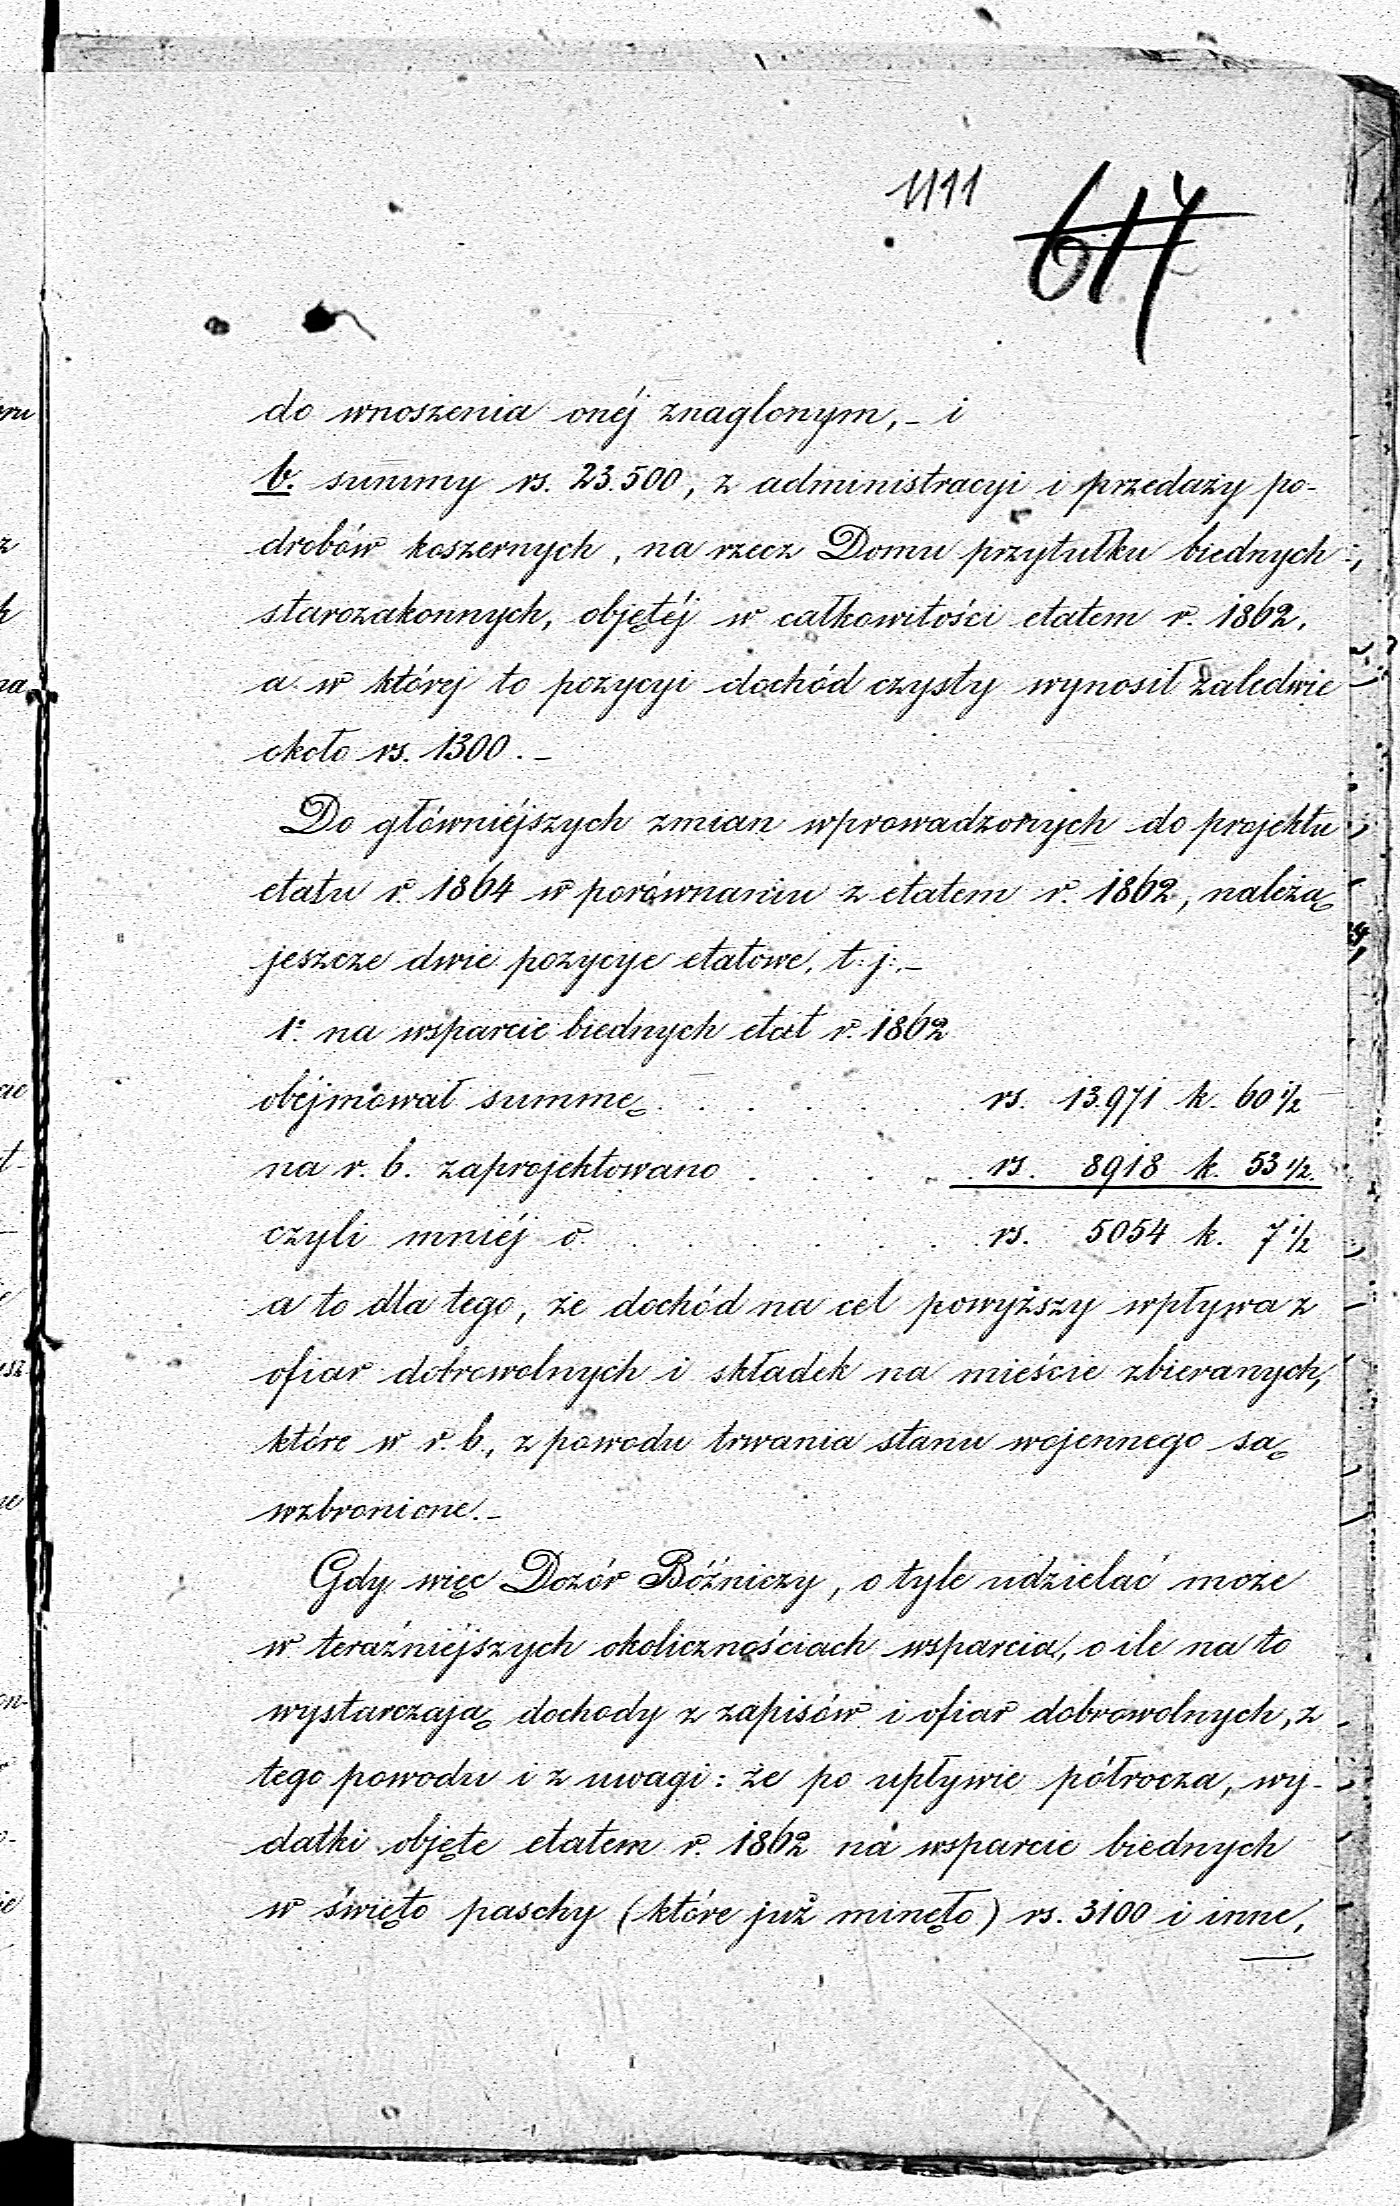 1111
617
do wnoszenia onéj znaglonym, – i
b. summy rs. 23.500, z administracyi i przedaży po-
drobów koszernych, na rzecz Domu przytułku biednych
starozakonnych, objętéj w całkowitości etatem r. 1862,
a w któréj to pozycyi dochód czysty wynosił zaledwie
około rs. 1300. –
Do główniéjszych zmian wprowadzonych do projektu
etatu r. 1864 w porównaniu z etatem r. 1862, należą
jeszcze dwie pozycye etatowe, t. j. –
1º na wsparcie biednych etat r. 1862
obéjmował summę . . . . . . rs. 13.971 k. 60 1/2
na r. b. zaprojektowano . . . . rs. 8918 k. 53 1/2.
czyli mniéj o . . . . . . rs. 5054 k. 7 1/2
a to dla tego, że dochód na cel powyższy wpływa z
ofiar dobrowolnych i składek na mieście zbieranych,
które w r. b., z powodu trwania stanu wojennego są
wzbronione. –
Gdy więc Dozór Bóźniczy, o tyle udzielać może
w teraźniéjszych okolicznościach wsparcia, o ile na to
wystarczają dochody z zapisów i ofiar dobrowolnych, z
tego powodu i z uwagi: że po upływie półrocza, wy-
datki objęte etatem r. 1862 na wsparcie biednych
w święto paschy (które już minęło) rs. 3100 i inne,